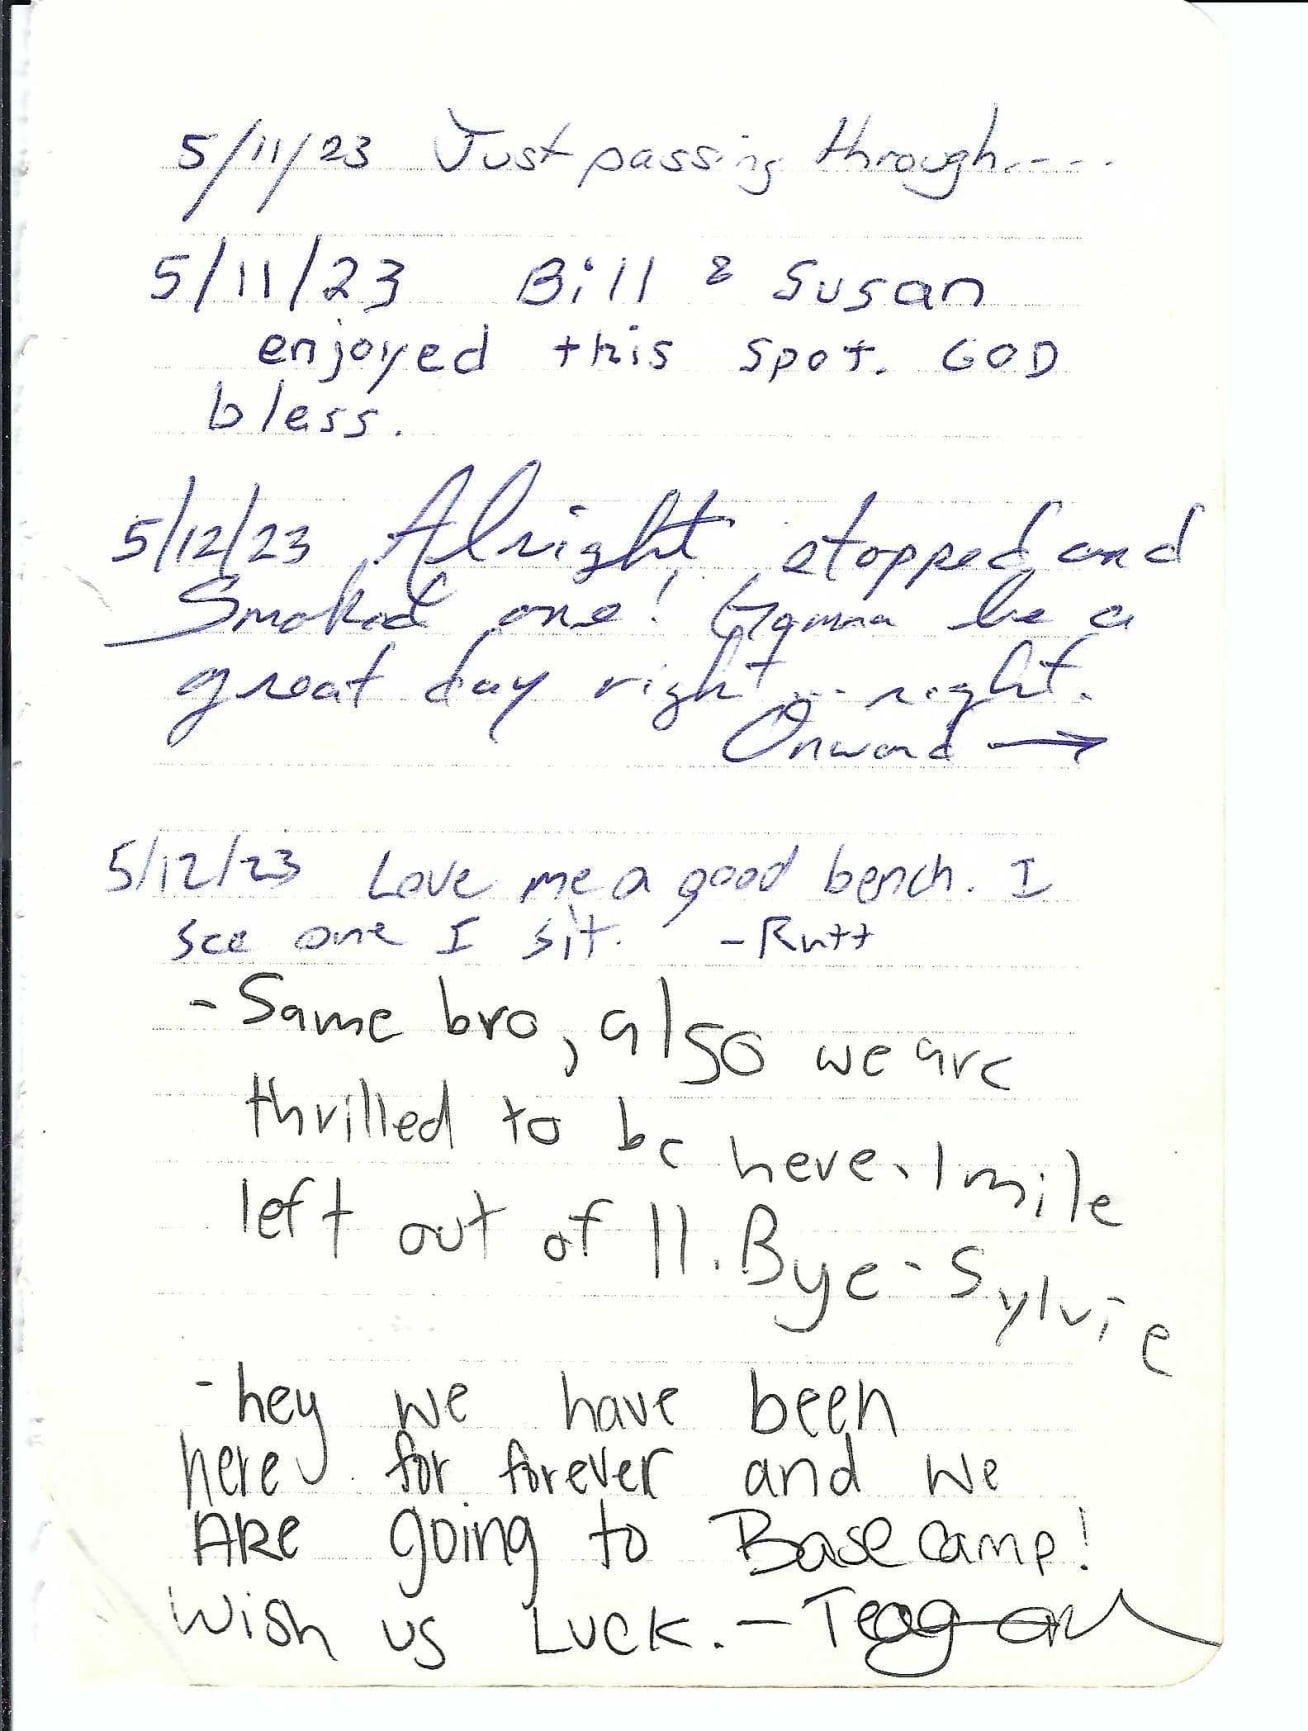 5/11/23 Just passing through.----
5/11/23 Bill & Susan
enjoyed this spot. GOD
bless.
5/12/23 Alright, stopped and
Smoked one! gonna be a
great day right ... right.
Onward →
5/12/23 Love me a good bench. I
see one I sit. -Rutt
- Same bro, also we are
thrilled to be here. 1 mile
left out of 11. Bye - Sylvie
- hey we have been
here for forever and we
ARE going to Basecamp!
Wish us Luck. - Teagan